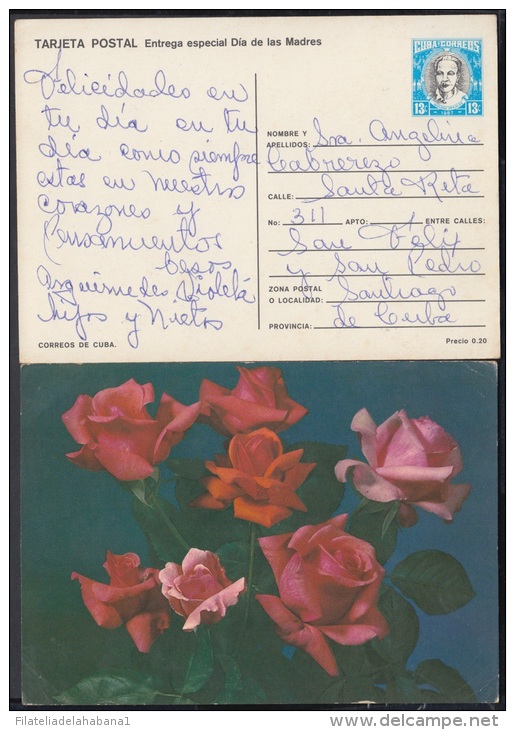 TARJETA POSTAL Entrega especial Día de las Madres
CUBA CORREOS
13¢ 1987 13¢
Felicidades en
tu día en tu
día como siempre
estas en nuestro
corazones y
Pensamientos
besos
Arquimedes Violeta
hijos y Nietos
NOMBRE Y
APELLIDOS: Sra. Angelina
Cabrerezo
CALLE: Santa Rita
No: 311 APTO: ENTRE CALLES:
San Félix
y San Pedro
ZONA POSTAL
O LOCALIDAD: Santiago
PROVINCIA: de Cuba
CORREOS DE CUBA.
Precio 0.20
Filateliadelahabana1
www.delcampe.net